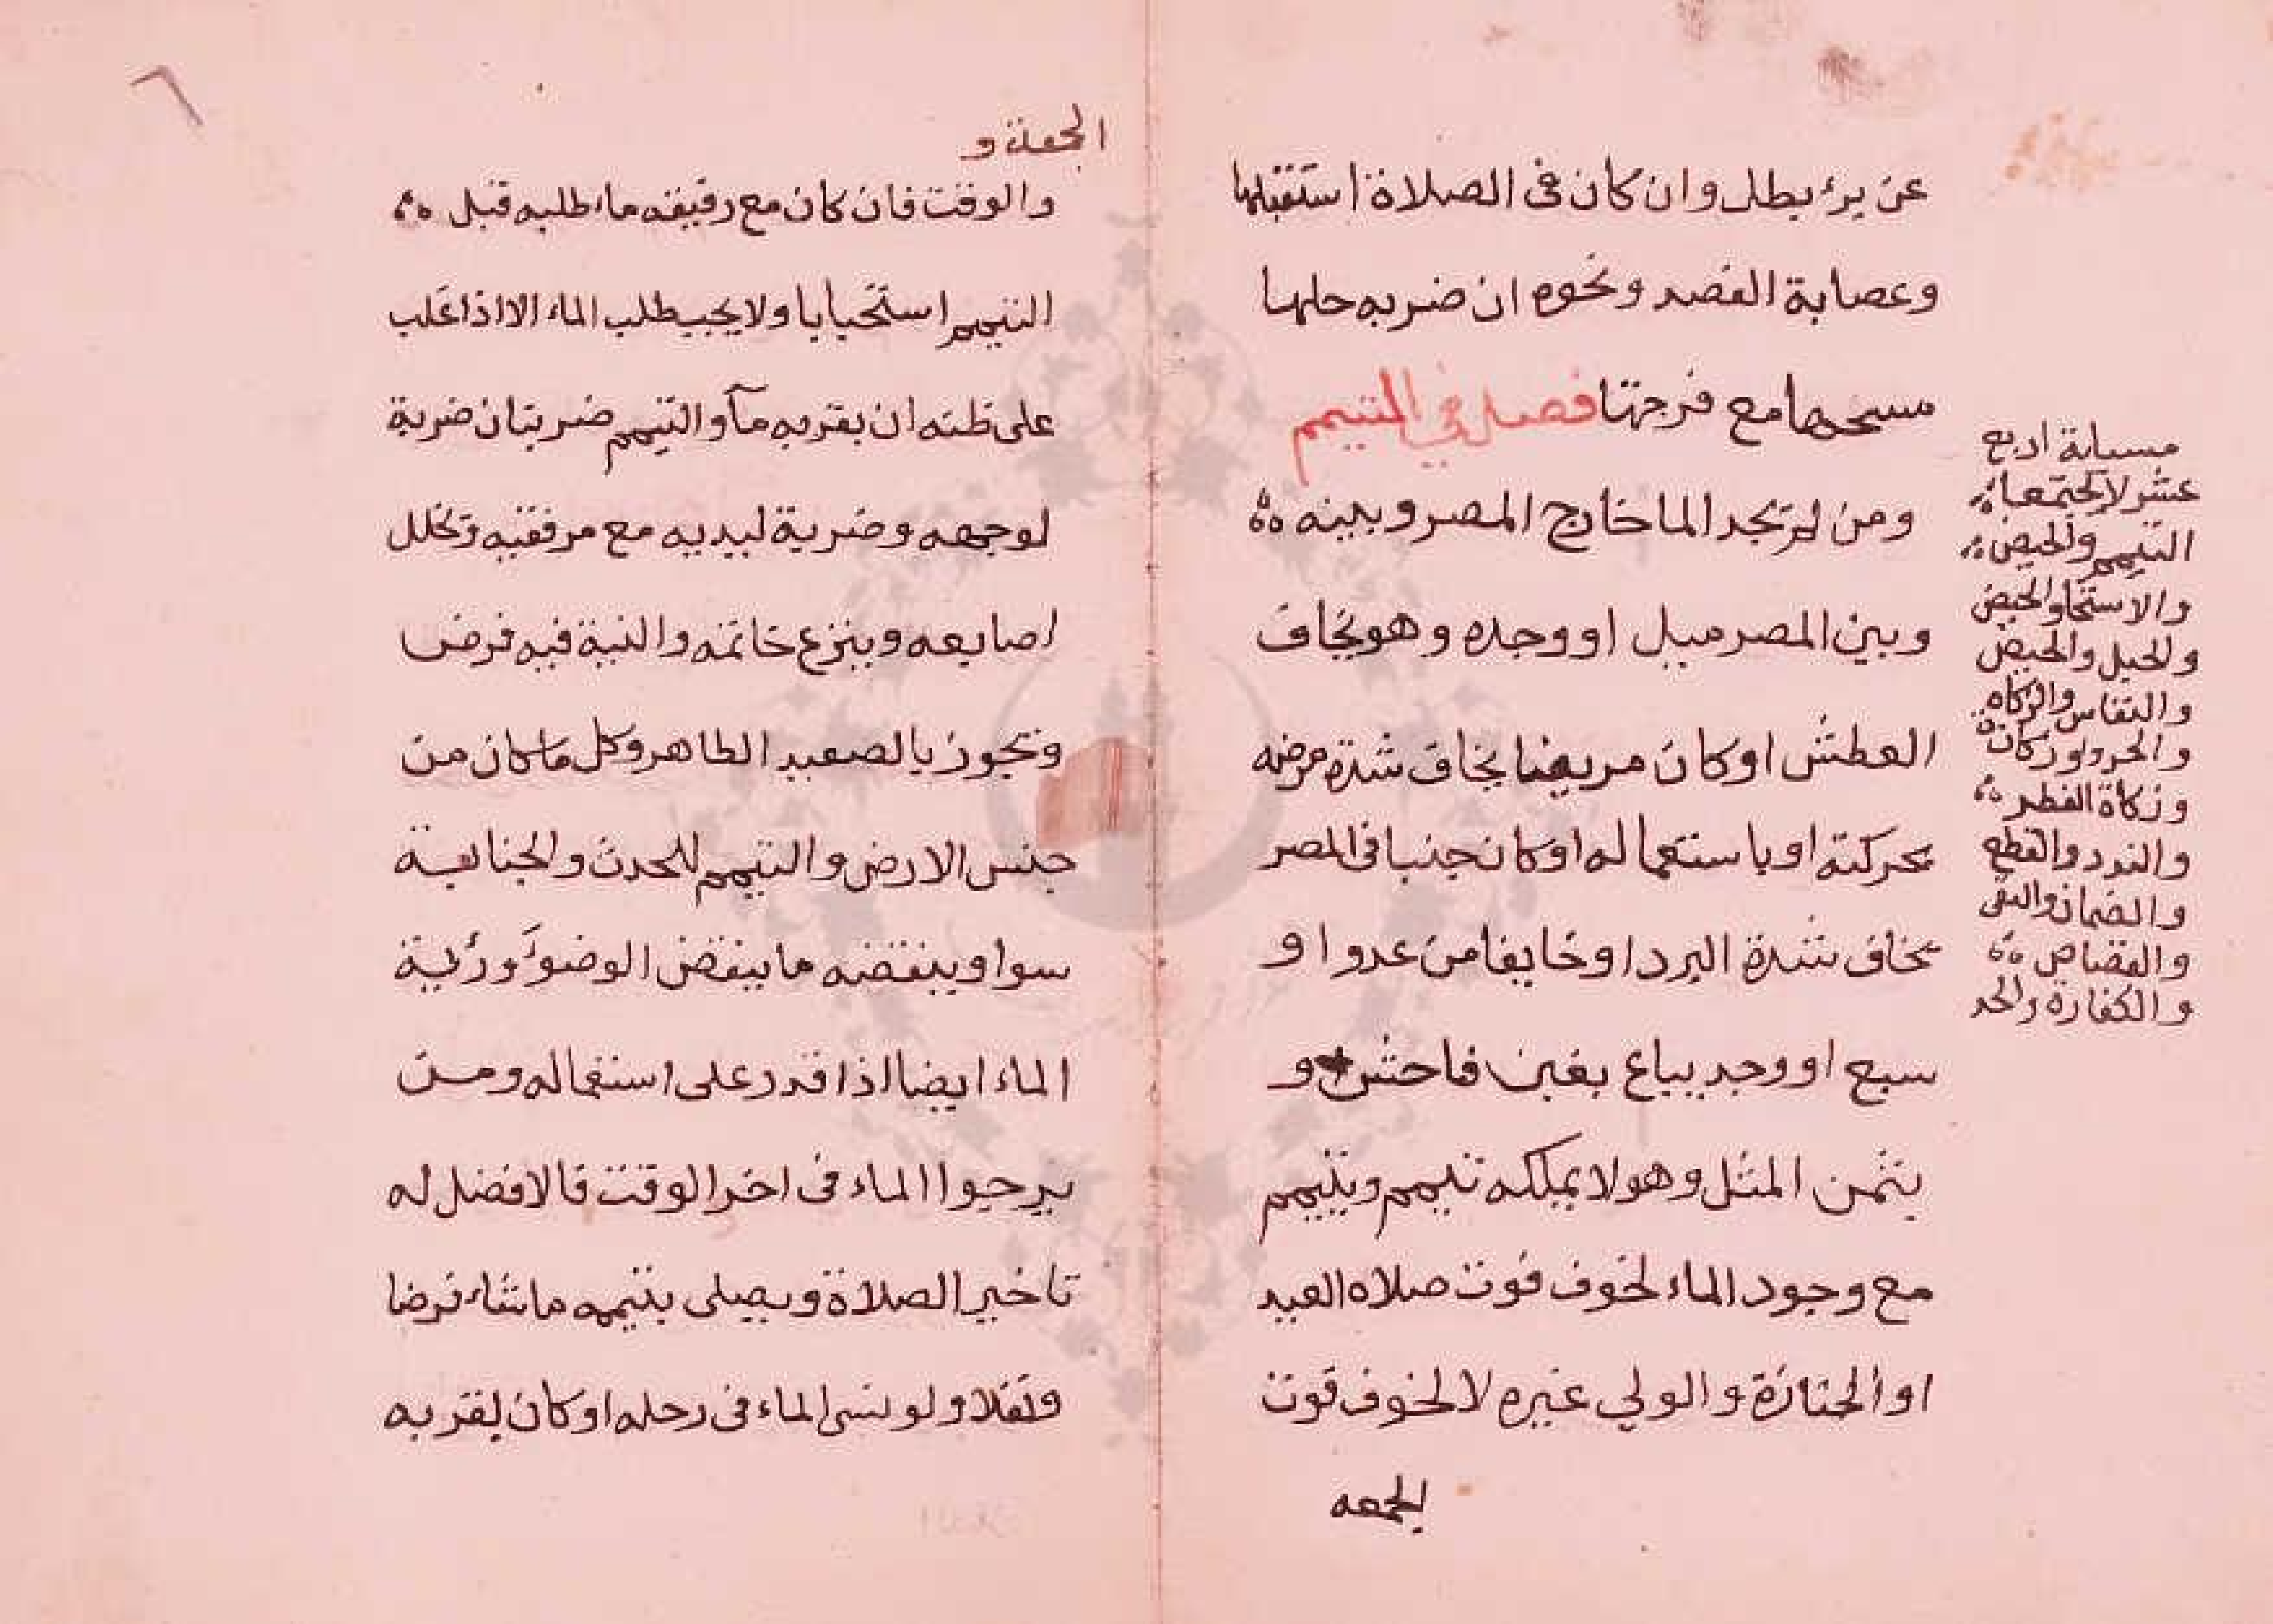 عن برء بطل وان كان فى الصلاة استقبلها
وعصابة الفصد ونحوه ان ضربه حلها
مسحها مع فرجتها فصل في التيمم
ومن لم يجد الما خارج المصر وبينه
وبين المصر ميل او وجده وهو يخاف
العطش او كان مريضا يخاف شدة مرضه
بحركته او باستعماله او كان جنبا فى المصر
يخاف شدة البرد او خايفا من عدو او
سبع او وجد يباع بغبن فاحش او
بثمن المثل وهو لا يملكه تيمم ويتيمم
مع وجود الماء لخوف فوت صلاه العيد
او الجنازة والولي غيره لا لخوف فوت
الجمعه
مسيلة اربع
عشر لا يجتمعا
التيمم والحيض
والاستحا والحيض
والحبل والحيض
والنفاس والزكاه
وزكاة الفطر
والقطع
والضمان
والقصاص
والكفارة والحد
٦
الجمعة و
والوقت فان كان مع رفيقه ماء طلبه قبل
التيمم استحبابا ولا يجب طلب الماء الا اذا غلب
على ظنه ان بقربه مآ والتيمم ضربتان ضربة
لوجهه وضربة ليديه مع مرفقيه وتخلل
اصابعه وينزع خاتمه والنية فيه فرض
وتجوز بالصعيد الطاهر وكل ما كان من
جنس الارض والتيمم للحدث والجنابة
سوا وينقضه ما ينقض الوضوء ورؤية
الماء ايضا اذا قدر على استعماله ومن
يرجوا الماء فى اخر الوقت فالافضل له
تاخير الصلاة ويصلى بتيممه ماشاء فرضا
ونفلا ولو نسى الماء فى رحله او كان بقربه